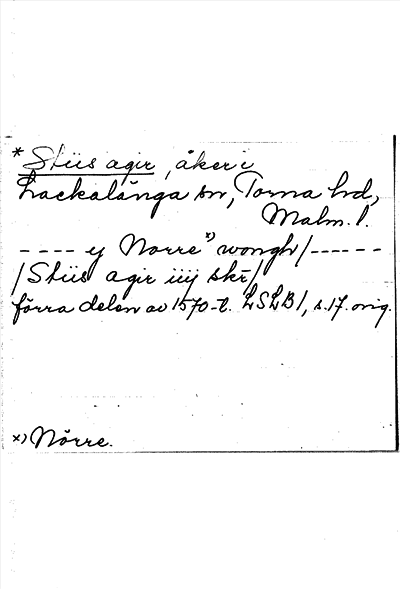 * Stiis agir, åker i
Lackalånga sn, Torna hd,
Malm. l.
---- y Norre x) wongh/------
/Stiis agir iiij skr/
förra delen av 1570-t. LSLB1, s.17. orig.
x) Nörre.